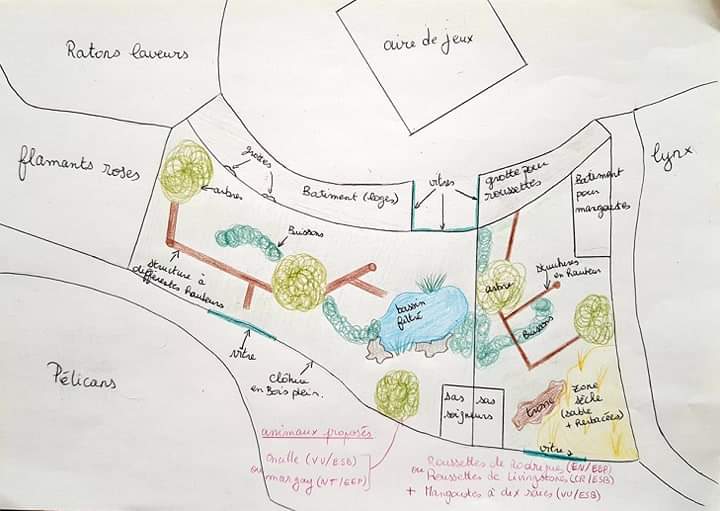 Ratons laveurs
aire de jeux
flamants roses
grottes
arbres
Bâtiment (loges)
vitres
grotte pour
roussettes
Bâtiment
pour
mangoustes
lynx
Buissons
structure à
différentes hauteurs
bassin
filtré
arbres
structures
en hauteur
Buissons
vitre
clôture
en Bois plein.
Pélicans
sas sas
soigneurs
tronc
zone
sèche
(sable
+ herbacées)
vitre
animaux proposés
Oncille (VU/ESB)
ou margay (NT/EEP)
Roussettes de Rodrigues (EN/EEP)
ou Roussettes de Livingstone (CR/ESB)
+ Mangoustes à dix raies (VU/ESB)